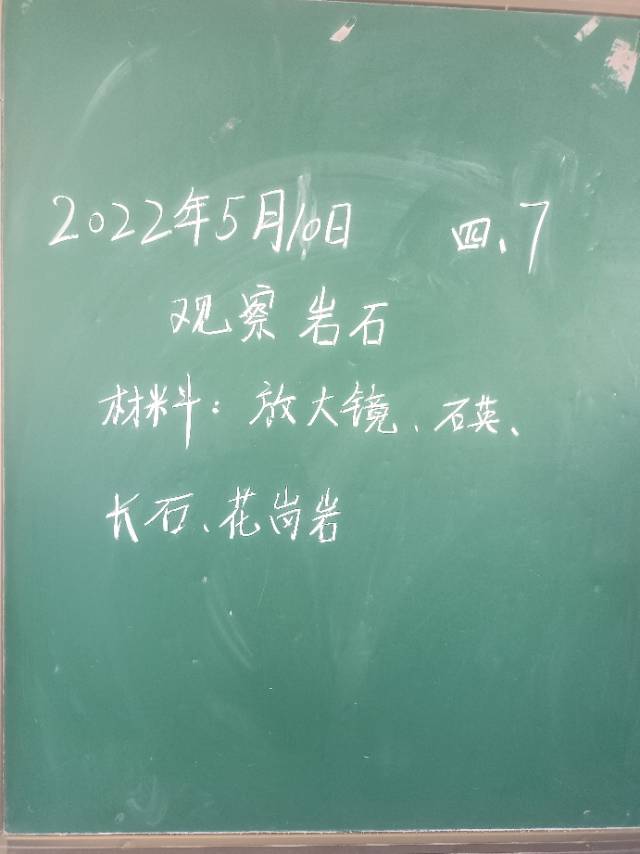 2022年5月10日 四、7
观察岩石
材料：放大镜、石英、
长石、花岗岩